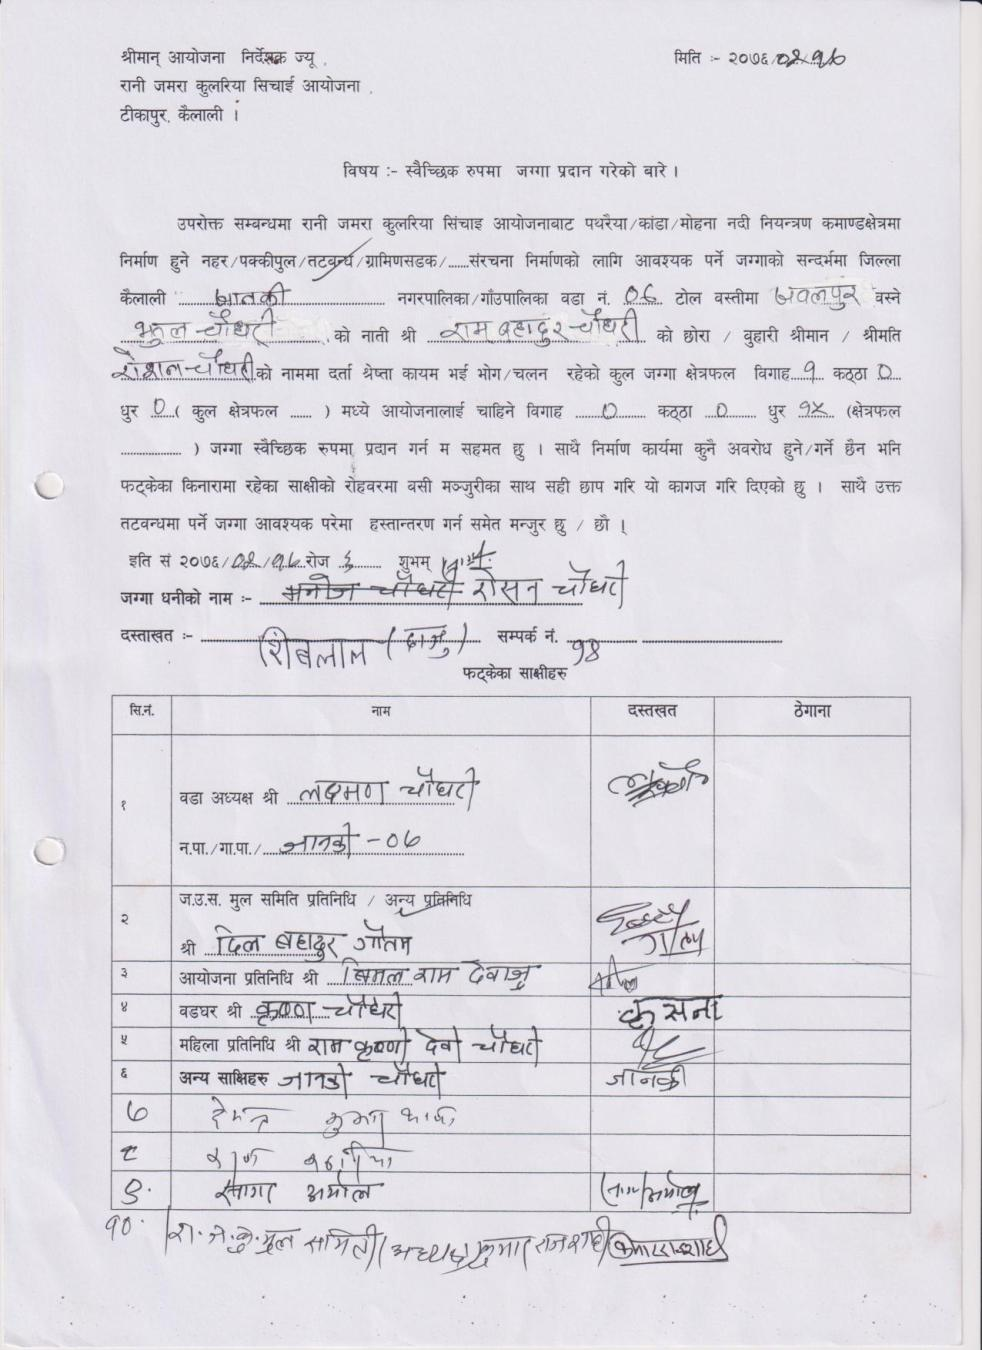 श्रीमान् आयोजना निर्देशक ज्यू , मिति :- २०७६/०२/१७
रानी जमरा कुलरिया सिचाई आयोजना ,
टीकापुर, कैलाली ।
विषय :- स्वैच्छिक रुपमा जग्गा प्रदान गरेको बारे ।
उपरोक्त सम्बन्धमा रानी जमरा कुलरिया सिंचाइ आयोजनाबाट पथरैया/कांडा/मोहना नदी नियन्त्रण कमाण्डक्षेत्रमा
निर्माण हुने नहर/पक्कीपुल/तटबन्ध/ग्रामिणसडक/......संरचना निर्माणको लागि आवश्यक पर्ने जग्गाको सन्दर्भमा जिल्ला
कैलाली जानकी नगरपालिका/गाँउपालिका वडा नं. ०६ टोल वस्तीमा जवलपुर वस्ने
भुतुल चौधरी को नाती श्री राम बहादुर चौधरी को छोरा / वुहारी श्रीमान / श्रीमति
रोशन चौधरी को नाममा दर्ता श्रेष्ता कायम भई भोग/चलन रहेको कुल जग्गा क्षेत्रफल विगाह १ कठ्ठा ०
धुर ० ( कुल क्षेत्रफल ...... ) मध्ये आयोजनालाई चाहिने विगाह ० कठ्ठा ० धुर १५ (क्षेत्रफल
................ ) जग्गा स्वैच्छिक रुपमा प्रदान गर्न म सहमत छु । साथै निर्माण कार्यमा कुनै अवरोध हुने/गर्ने छैन भनि
फट्केका किनारामा रहेका साक्षीको रोहवरमा वसी मञ्जुरीका साथ सही छाप गरि यो कागज गरि दिएको छु । साथै उक्त
तटवन्धमा पर्ने जग्गा आवश्यक परेमा हस्तान्तरण गर्न समेत मन्जुर छु / छौ ।
इति सं २०७६/०२/१७ रोज ६ शुभम्
जग्गा धनीको नाम :- मनोज चौधरी रोसन चौधरी
दस्ताखत :- शिवलाल (दाजु) सम्पर्क नं. ९८
फट्केका साक्षीहरु
सि.नं. नाम दस्तखत ठेगाना
१ वडा अध्यक्ष श्री लक्ष्मण चौधरी
न.पा./गा.पा./ जानकी -०६
ज.उ.स. मुल समिति प्रतिनिधि / अन्य प्रतिनिधि
२ श्री दिल बहादुर गौतम
३ आयोजना प्रतिनिधि श्री बिमल राम देवाजु
४ वडघर श्री कृष्ण चौधरी कृसना
५ महिला प्रतिनिधि श्री राम कृष्णी देवी चौधरी
६ अन्य साक्षिहरु जानकी चौधरी जानकी
७
८
९.
१०. रा.ज.कु. मुल समिती अध्यक्ष कुमार राज शाही